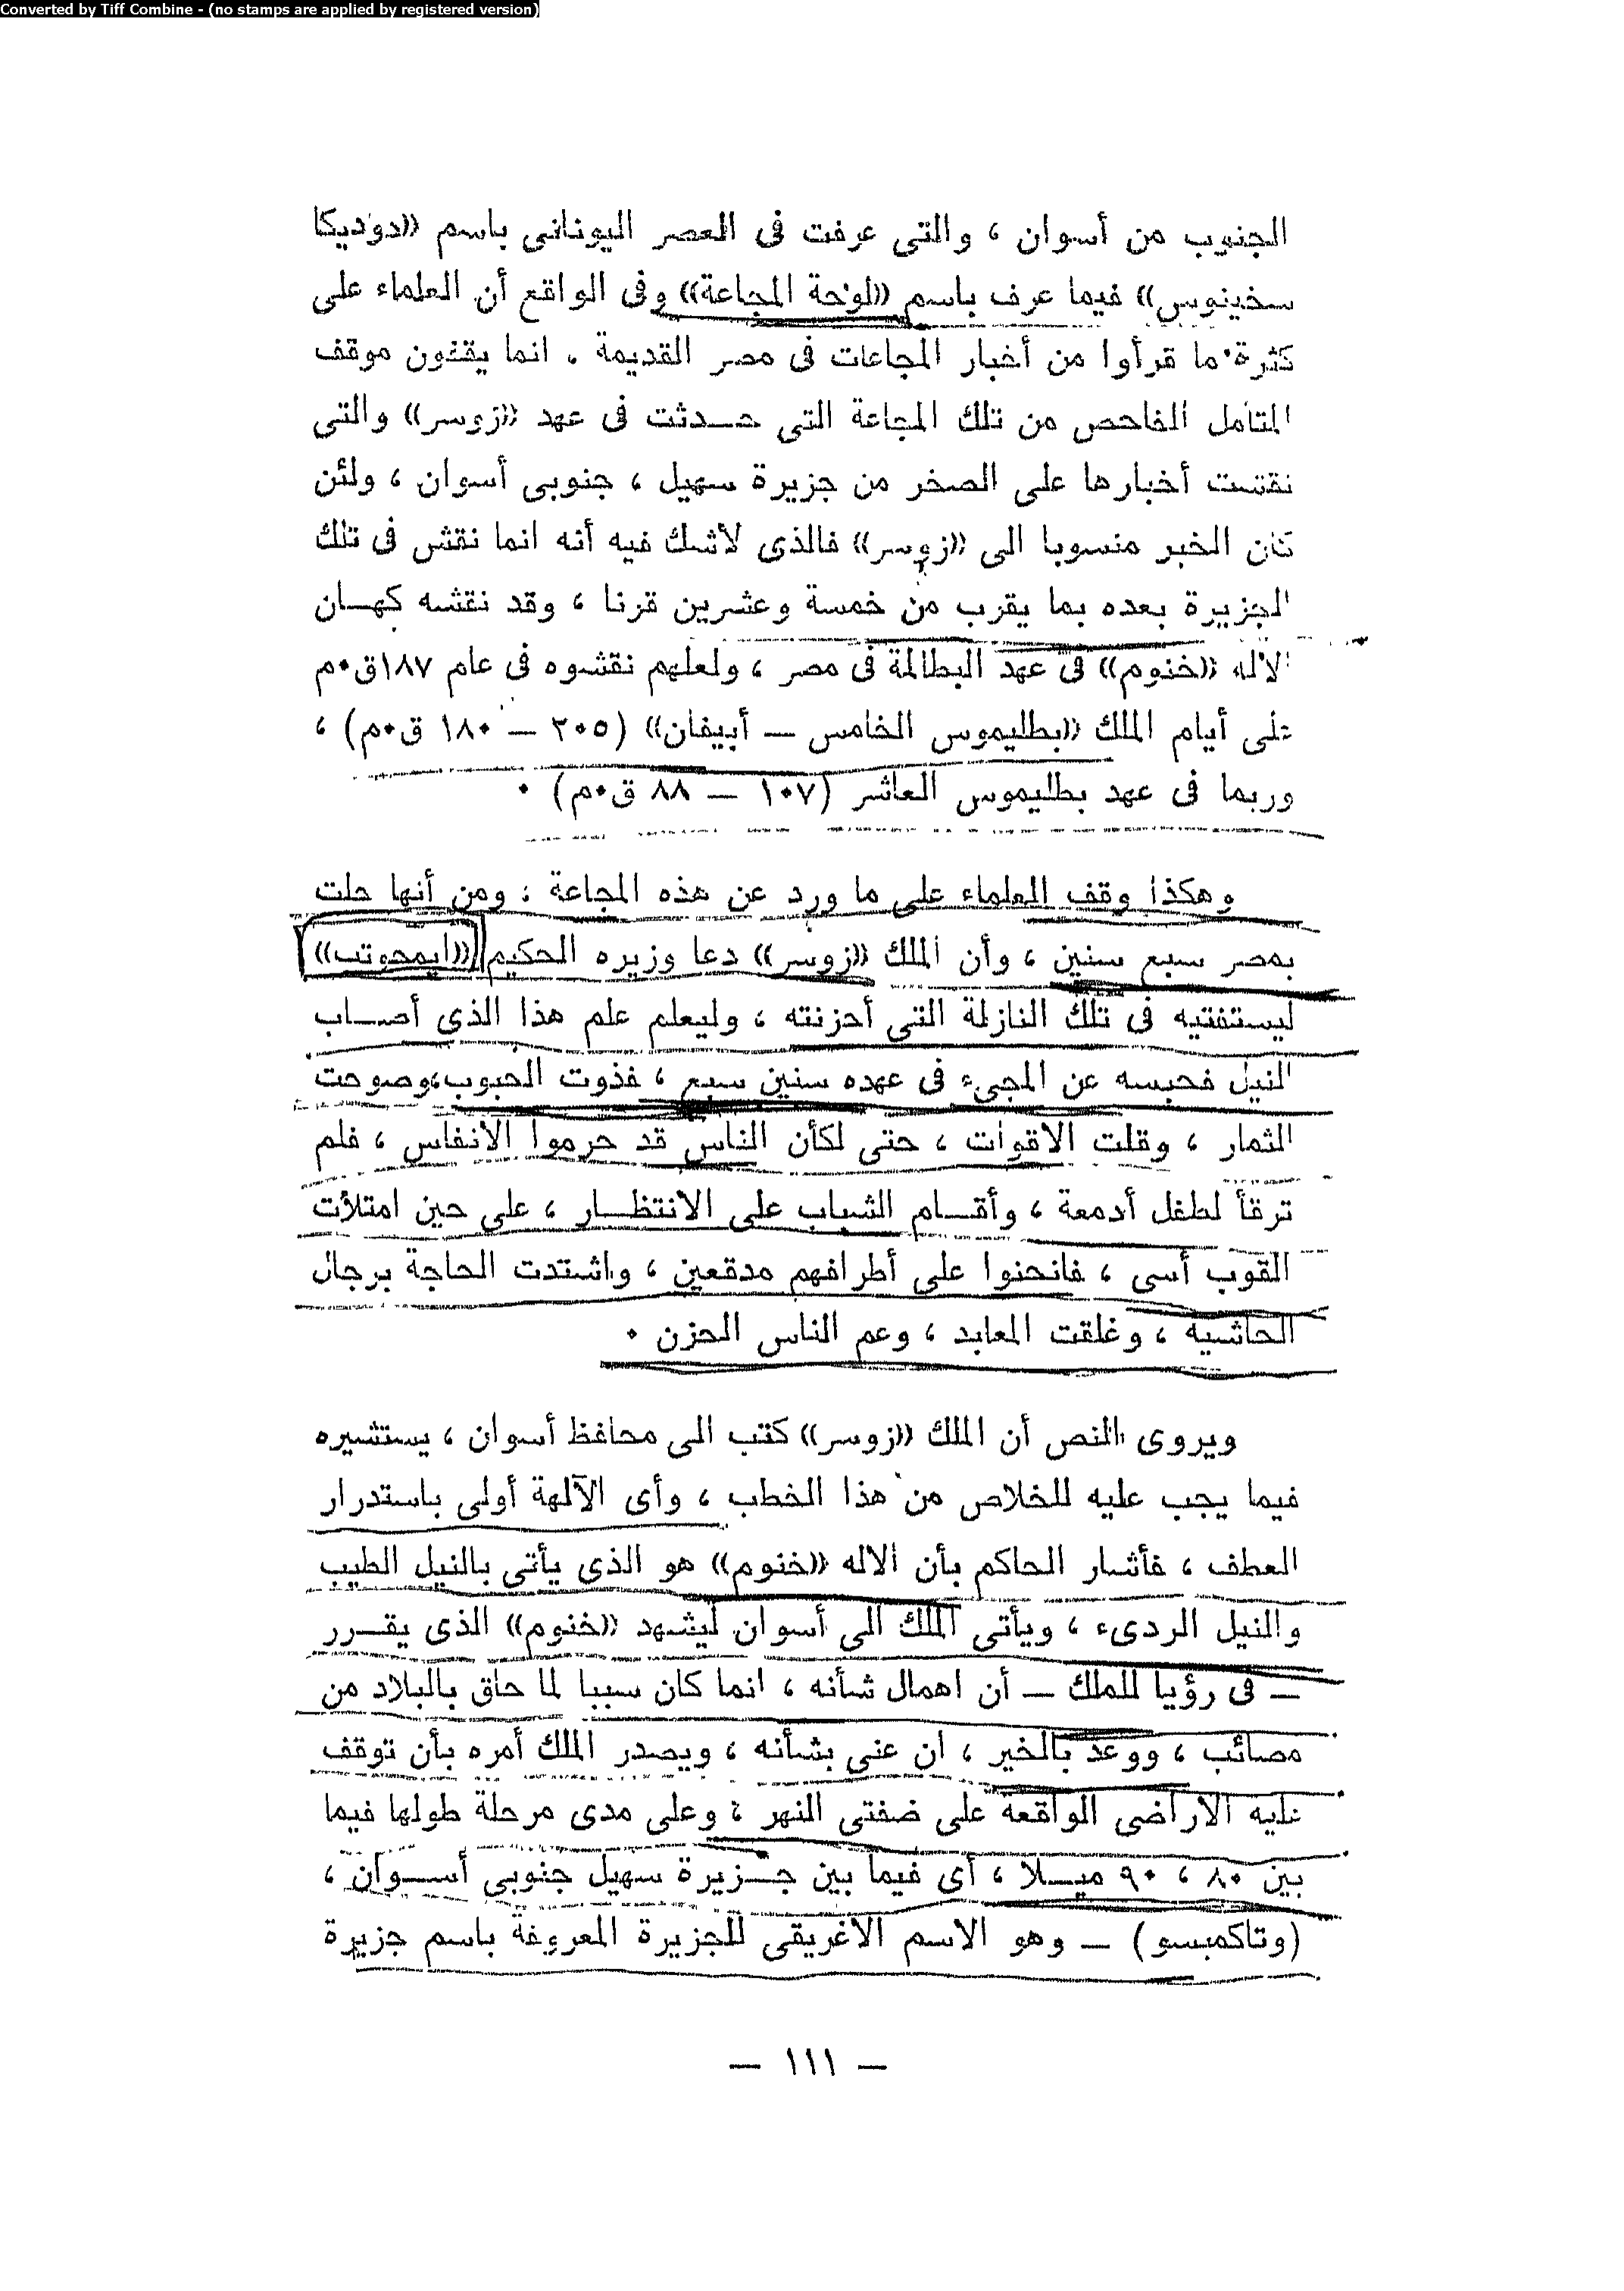 Converted by Tiff Combine - (no stamps are applied by registered version)
الجنوب من أسوان ، والتى عرفت فى العصر اليونانى باسم «دوديكا
سخينوس» فيما عرف باسم «لوحة المجاعة» وفى الواقع أن العلماء على
كثرة ما قرأوا من أخبار المجاعات فى مصر القديمة . انما يقفون موقف
المتأمل الفاحص من تلك المجاعة التى حـدثت فى عهد «زوسر» والتى
نقشت أخبارها على الصخر من جزيرة سهيل ، جنوبى أسوان ، ولئن
كان الخبر منسوبا الى «زوسر» فالذى لاشك فيه أنه انما نقش فى تلك
الجزيرة بعده بما يقرب من خمسة وعشرين قرنا ، وقد نقشه كهـان
الاله «خنوم» فى عهد البطالمة فى مصر ، ولعلهم نقشوه فى عام ١٨٧ق٠م
على أيام الملك «بطليموس الخامس — أبيفان» (٢٠٥ — ١٨٠ ق٠م) ،
وربما فى عهد بطليموس العاشر (١٠٧ — ٨٨ ق٠م) ٠
وهكذا وقف العلماء على ما ورد عن هذه المجاعة : ومن أنها حلت
بمصر سبع سنين ، وأن الملك «زوسر» دعا وزيره الحكيم «ايمحوتب»
ليستفتيه فى تلك النازلة التى أحزنته ، وليعلم علم هذا الذى أصـاب
النيل فحبسه عن المجىء فى عهده سنين سبع ، فذوت الحبوب،وصوحت
الثمار ، وقلت الاقوات ، حتى لكأن الناس قد حرموا الأنفاس ، فلم
ترقأ لطفل أدمعة ، وأقـام الشباب على الانتظـار ، على حين امتلأت
القوب أسى ، فانحنوا على أطرافهم مدقعين ، واشتدت الحاجة برجال
الحاشيه ، وغلقت المعابد ، وعم الناس الحزن ٠
ويروى النص أن الملك «زوسر» كتب الى محافظ أسوان ، يستشيره
فيما يجب عليه للخلاص من هذا الخطب ، وأى الآلهة أولى باستدرار
العطف ، فأشار الحاكم بأن الاله «خنوم» هو الذى يأتى بالنيل الطيب
والنيل الردىء ، ويأتى الملك الى أسوان ليشهد «خنوم» الذى يقـرر
— فى رؤيا للملك — أن اهمال شأنه ، انما كان سببا لما حاق بالبلاد من
مصائب ، ووعد بالخير ، ان عنى بشأنه ، ويصدر الملك أمره بأن توقف
عليه الاراضى الواقعة على ضفتى النهر ، وعلى مدى مرحلة طولها فيما
بين ٨٠ ، ٩٠ ميـلا ، أى فيما بين جـزيرة سهيل جنوبى أسـوان ،
(وتاكمبسو) — وهو الاسم الاغريقى للجزيرة المعروفة باسم جزيرة
— ١١١ —